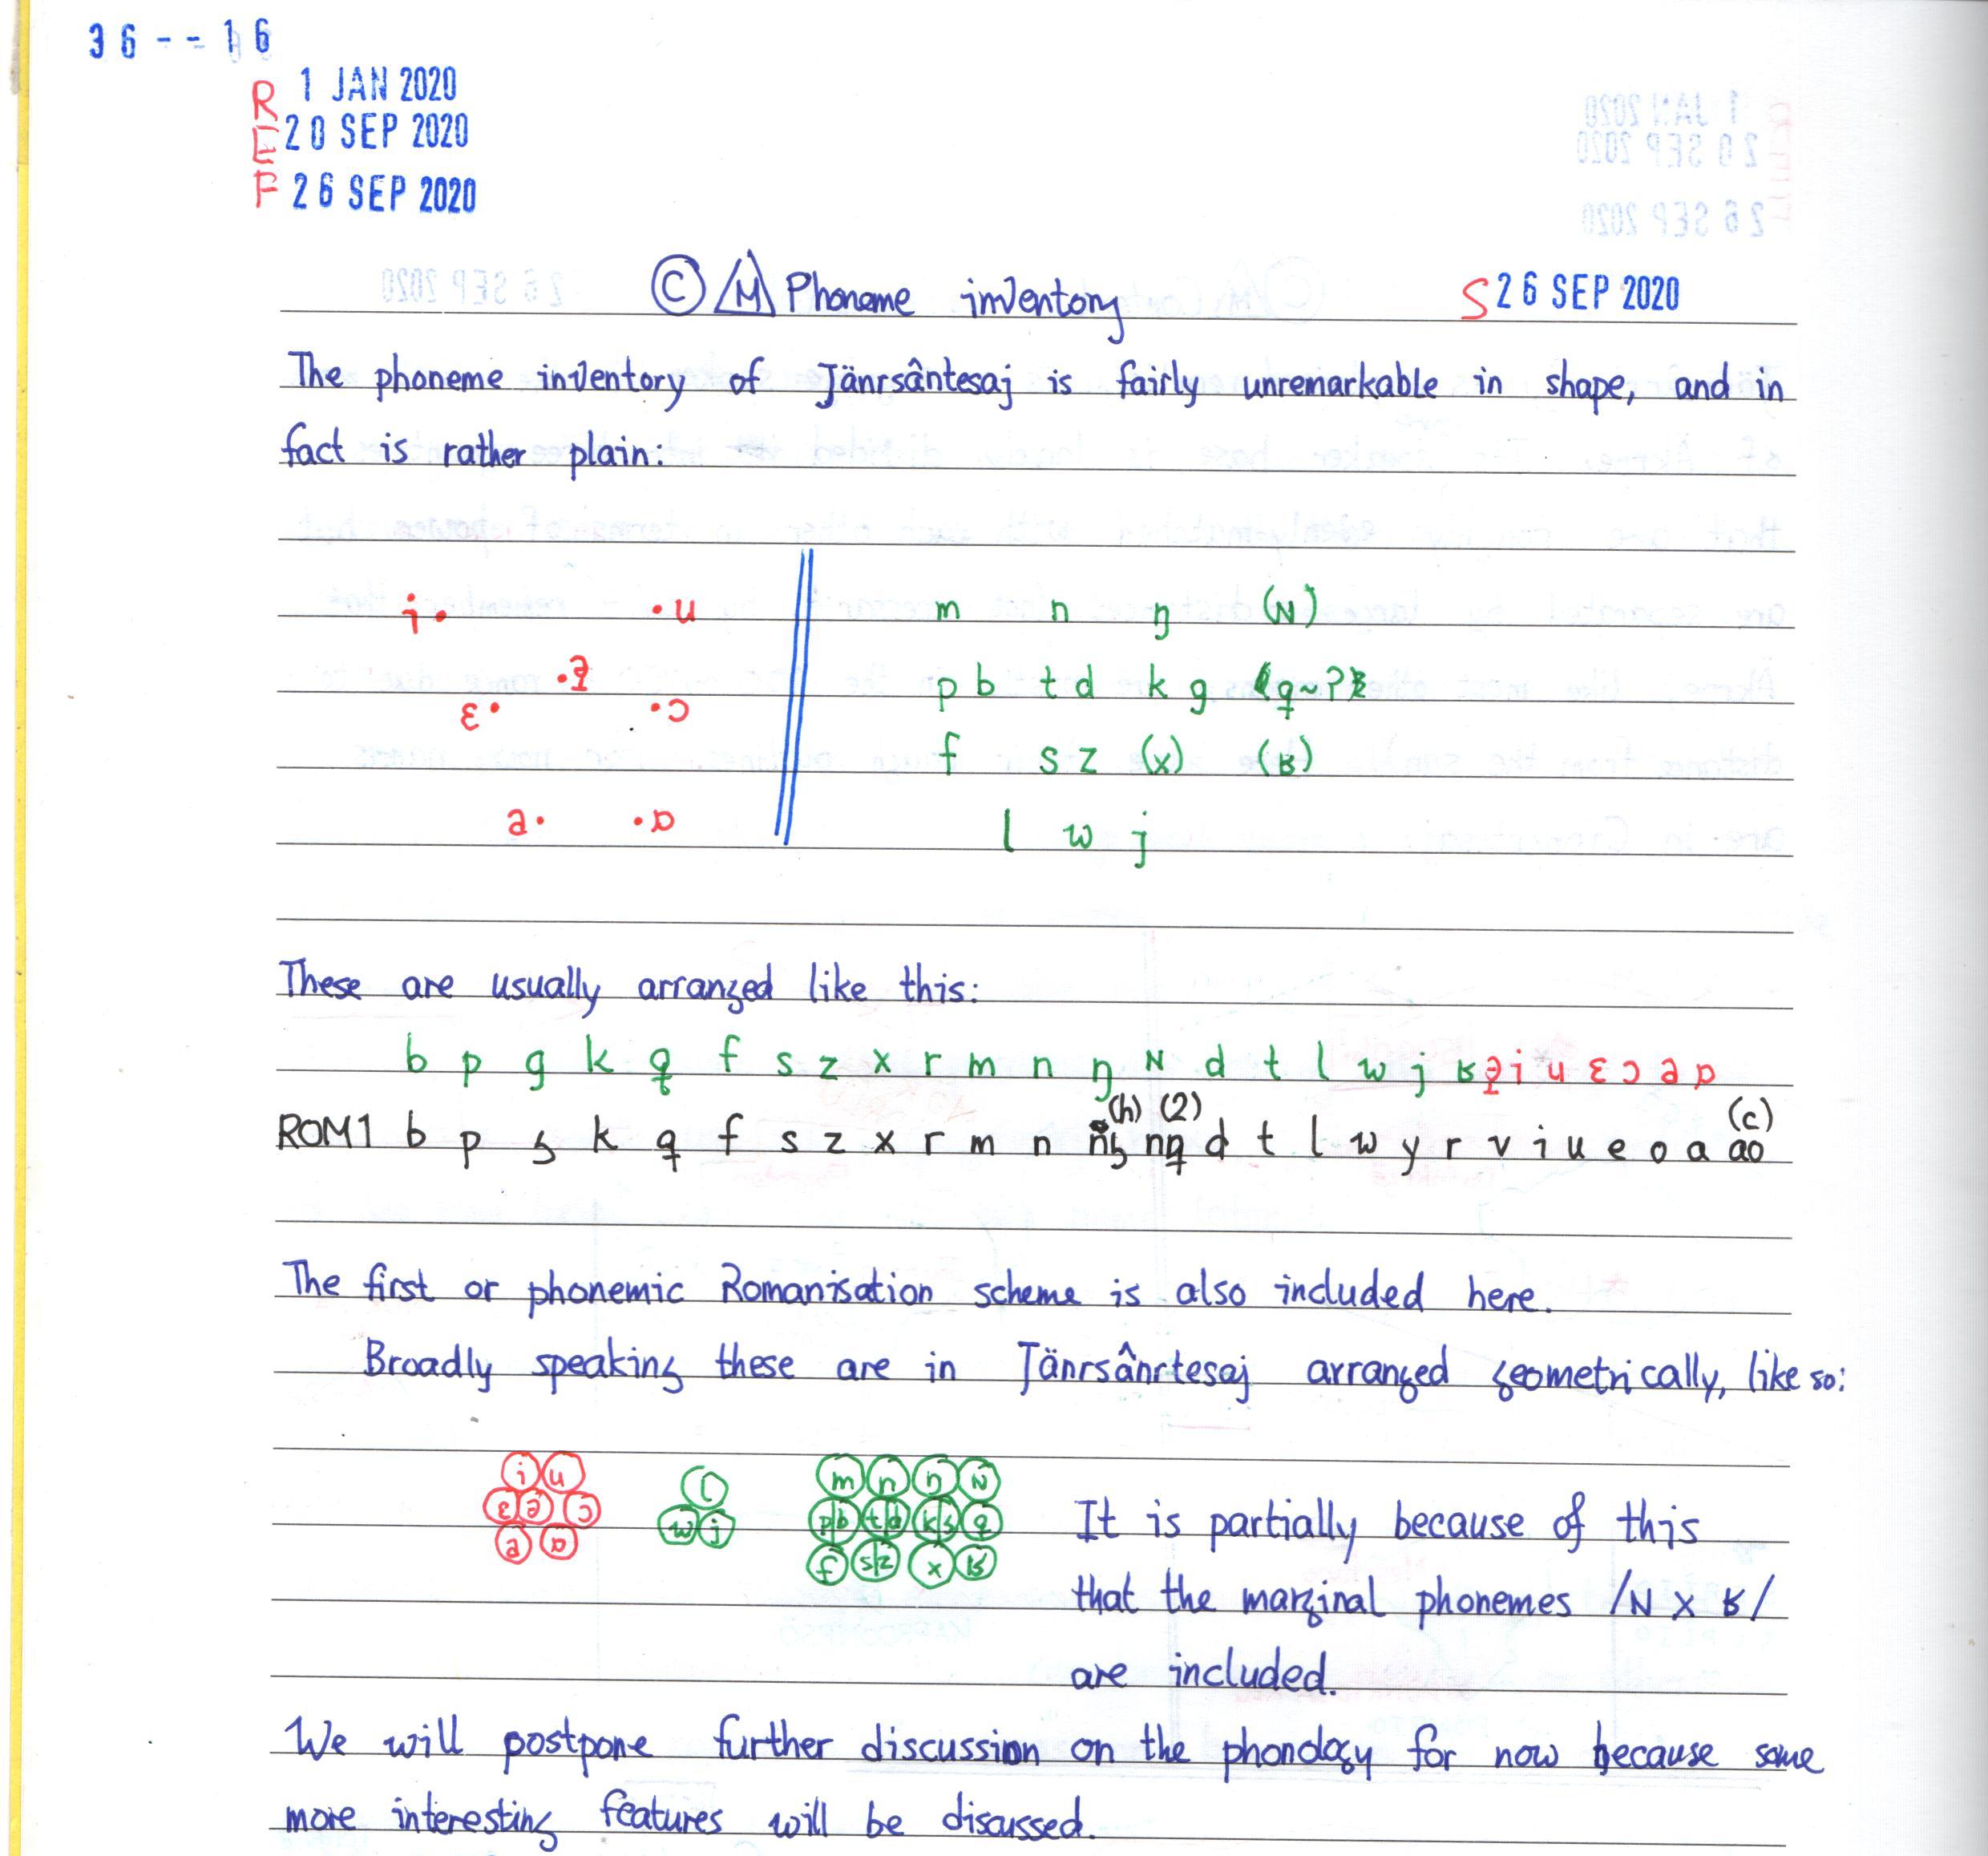 36--16
R 1 JAN 2020
E 20 SEP 2020
F 26 SEP 2020
Ⓒ M Phoneme inventory S 26 SEP 2020
The phoneme inventory of Jänrsântesaj is fairly unremarkable in shape, and in
fact is rather plain:
i u m n ŋ (ɴ)
p b t d k g q~ʔ
ɛ ɔ f s z (x) (ʁ)
l w j
These are usually arranged like this:
b p g k q f s z x r m n ŋ ɴ d t l w j ʁ
(h) (2) (c)
ROM1 b p g k q f s z x r m n ng nq d t l w y r v i u e o a ao
The first or phonemic Romanisation scheme is also included here.
Broadly speaking these are in Jänrsânrtesaj arranged geometrically, like so:
i u l m n ŋ ɴ
w j p b t d k g q
f s z x ʁ
It is partially because of this
that the marginal phonemes /ɴ x ʁ/
are included.
We will postpone further discussion on the phonology for now because some
more interesting features will be discussed.